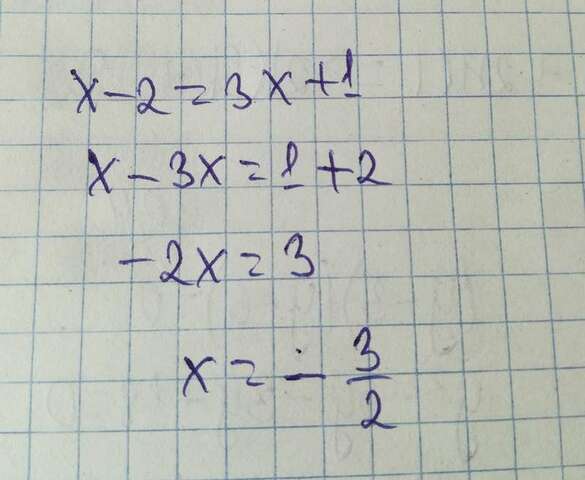 x - 2 = 3x + 1
x - 3x = 1 + 2
-2x = 3
x = - 3/2